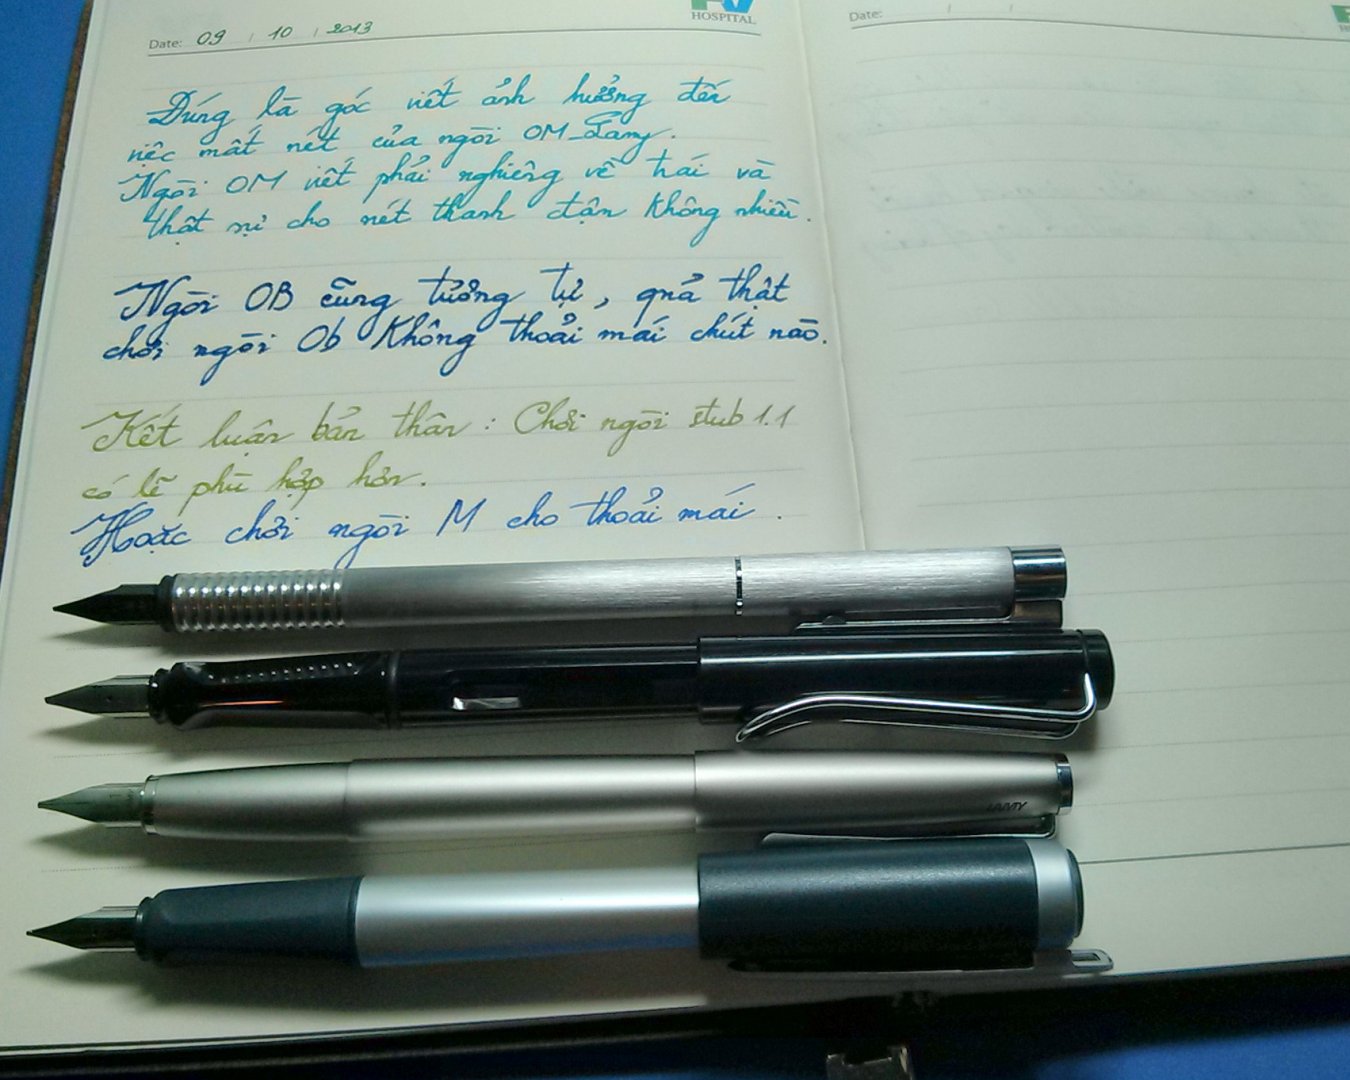 FV
HOSPITAL
Date: 09 / 10 / 2013
Đúng là góc viết ảnh hưởng đến
việc mất nét của ngòi OM_Lamy.
Ngòi OM viết phải nghiêng về trái và
thật sự cho nét thanh đậm không nhiều.
Ngòi OB cũng tương tự, quả thật
chơi ngòi Ob không thoải mái chút nào.
Kết luận bản thân : Chơi ngòi stub 1.1
có lẽ phù hợp hơn.
Hoặc chơi ngòi M cho thoải mái .
Date: / /
LAMY